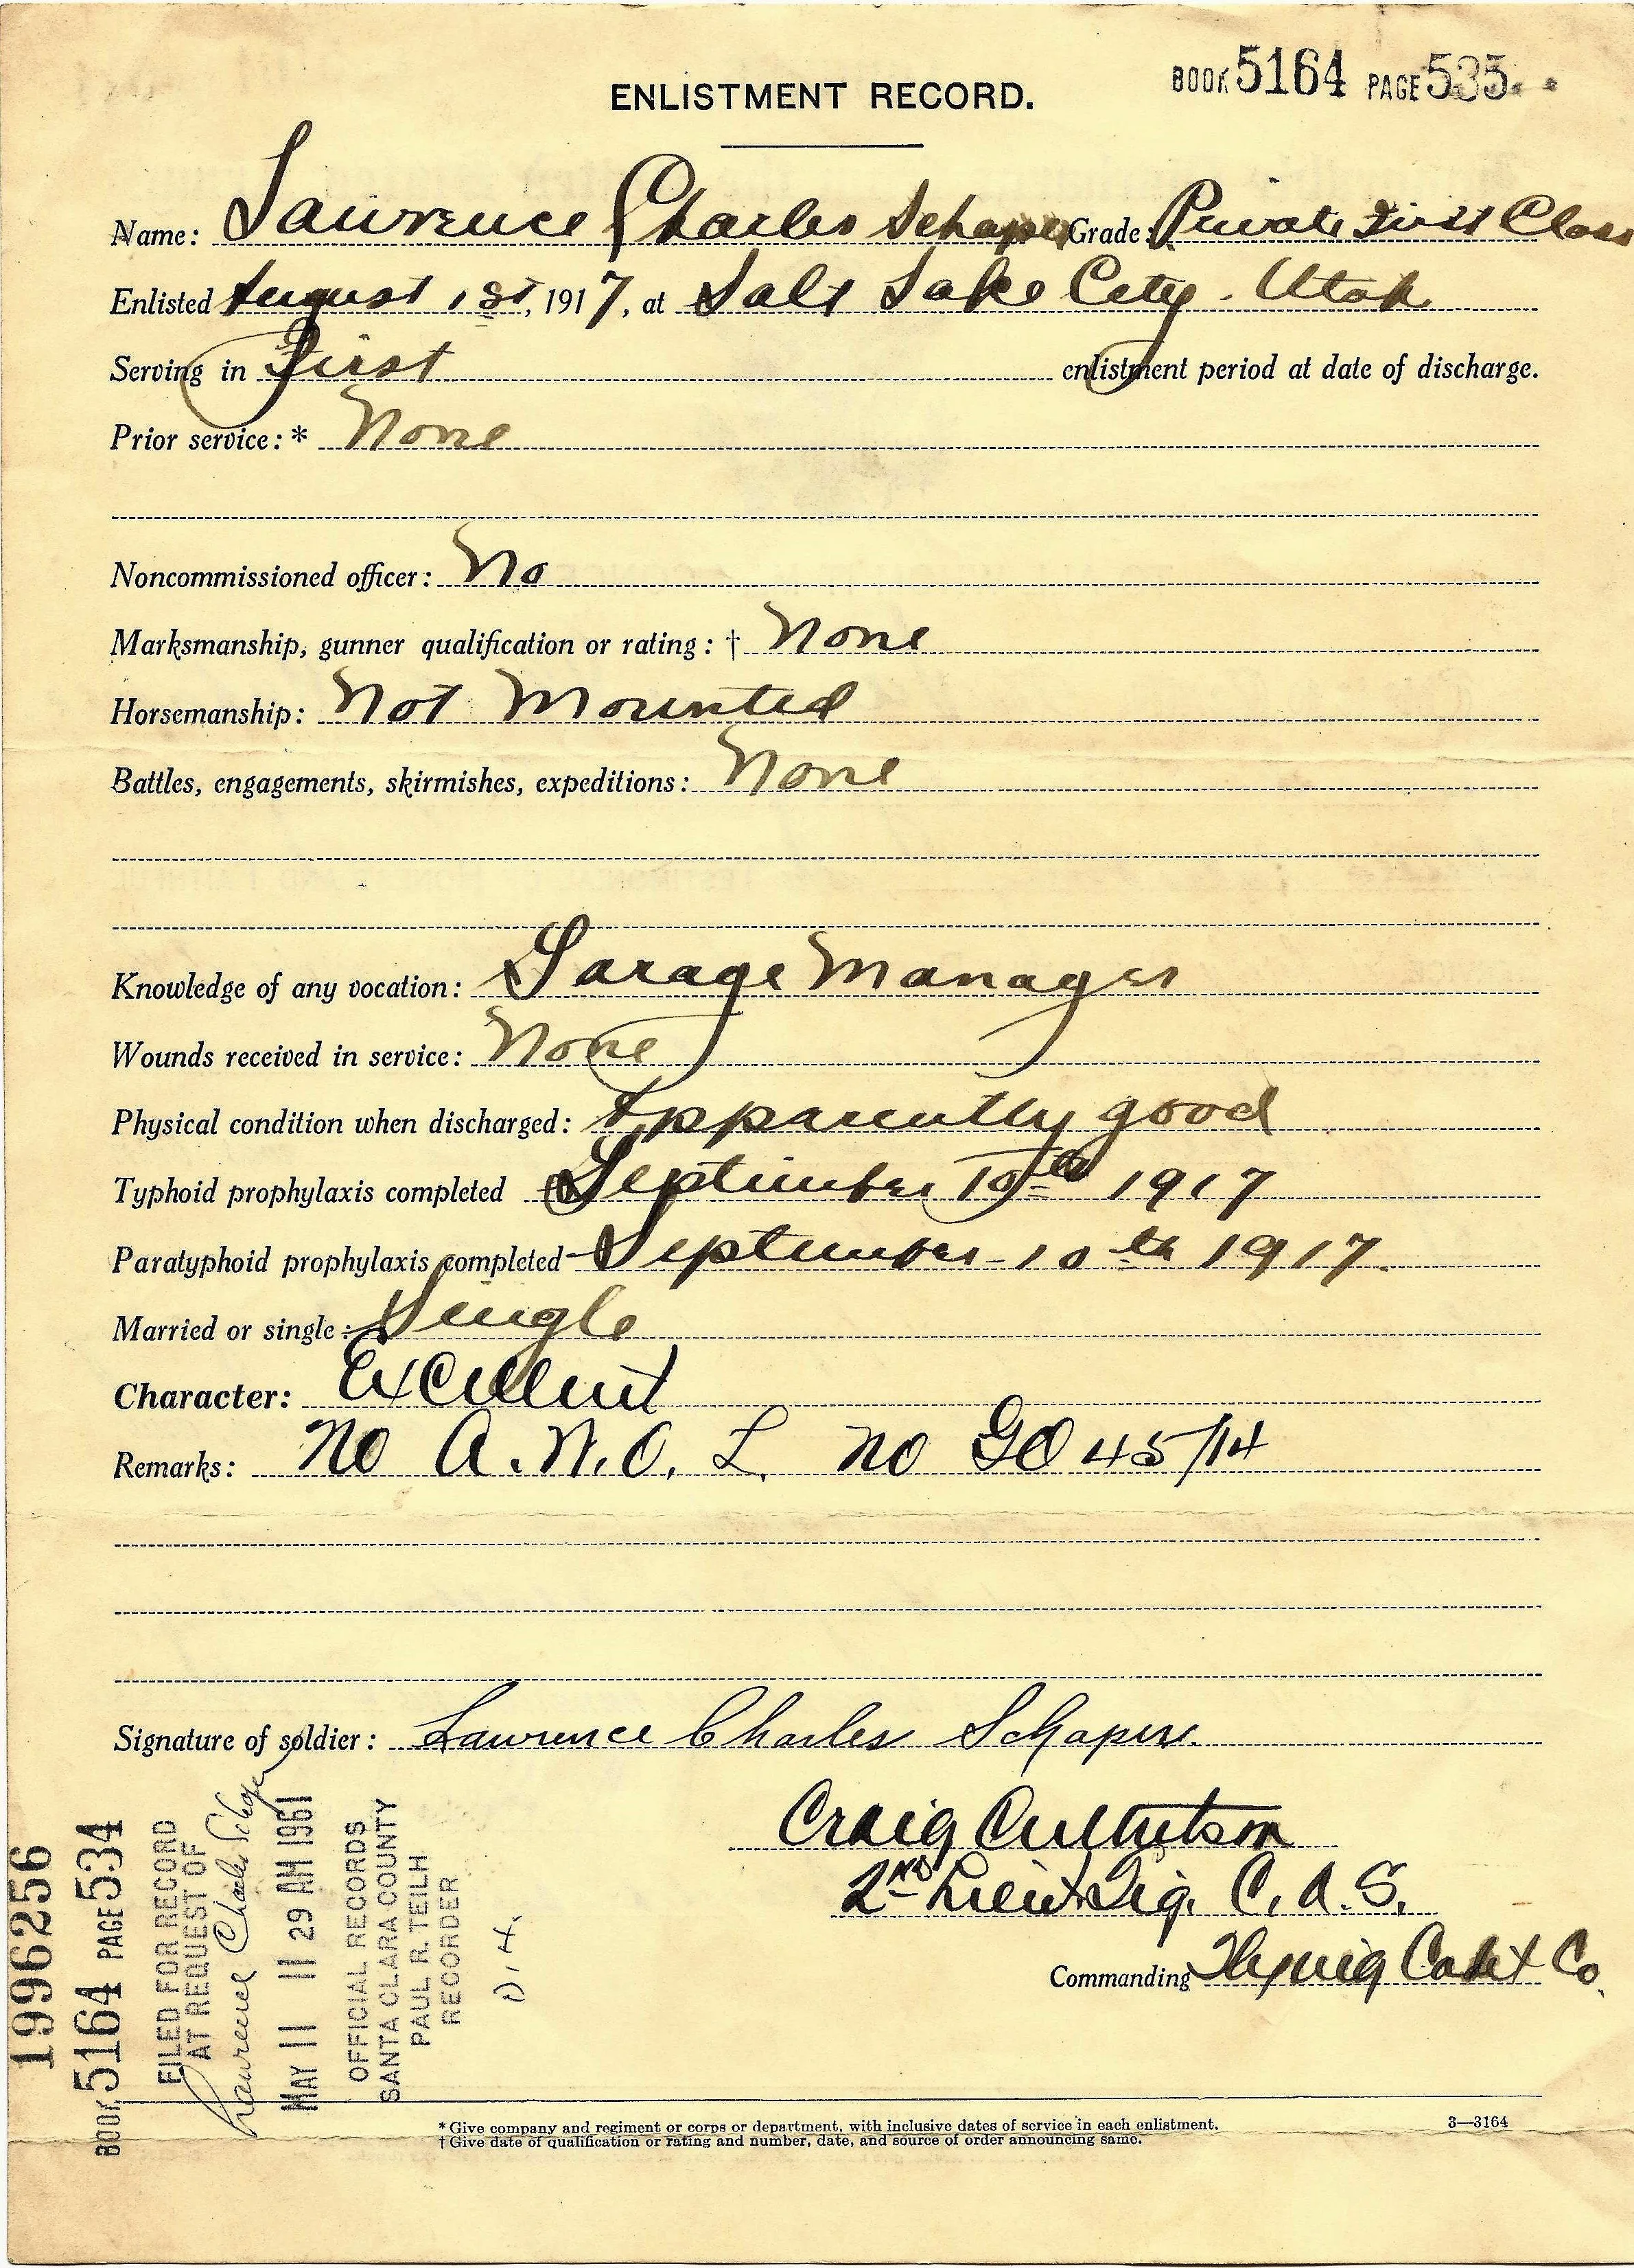 BOOK 5164 PAGE 535
ENLISTMENT RECORD.
Name: Lawrence Charles Schaper Grade: Private First Class
Enlisted August 1st, 1917, at Salt Lake City. Utah
Serving in First enlistment period at date of discharge.
Prior service:* None
Noncommissioned officer: No
Marksmanship, gunner qualification or rating:† None
Horsemanship: Not Mounted
Battles, engagements, skirmishes, expeditions: None
Knowledge of any vocation: Garage Manager
Wounds received in service: None
Physical condition when discharged: Apparently good
Typhoid prophylaxis completed September 10th 1917
Paratyphoid prophylaxis completed September 10th 1917.
Married or single: Single
Character: Excellent
Remarks: No A.W.O.L. no GO 45/14
Signature of soldier: Lawrence Charles Schaper.
Craig Culbertson
2nd Lieut Sig. C. A. S.
Commanding Flying Cadet Co.
1996256
BOOK 5164 PAGE 534
FILED FOR RECORD
AT REQUEST OF
Lawrence Charles Schaper
MAY 11 11 29 AM 1961
OFFICIAL RECORDS
SANTA CLARA COUNTY
PAUL R. TEILH
RECORDER
D.H.
* Give company and regiment or corps or department, with inclusive dates of service in each enlistment.
† Give date of qualification or rating and number, date, and source of order announcing same.
3—3164